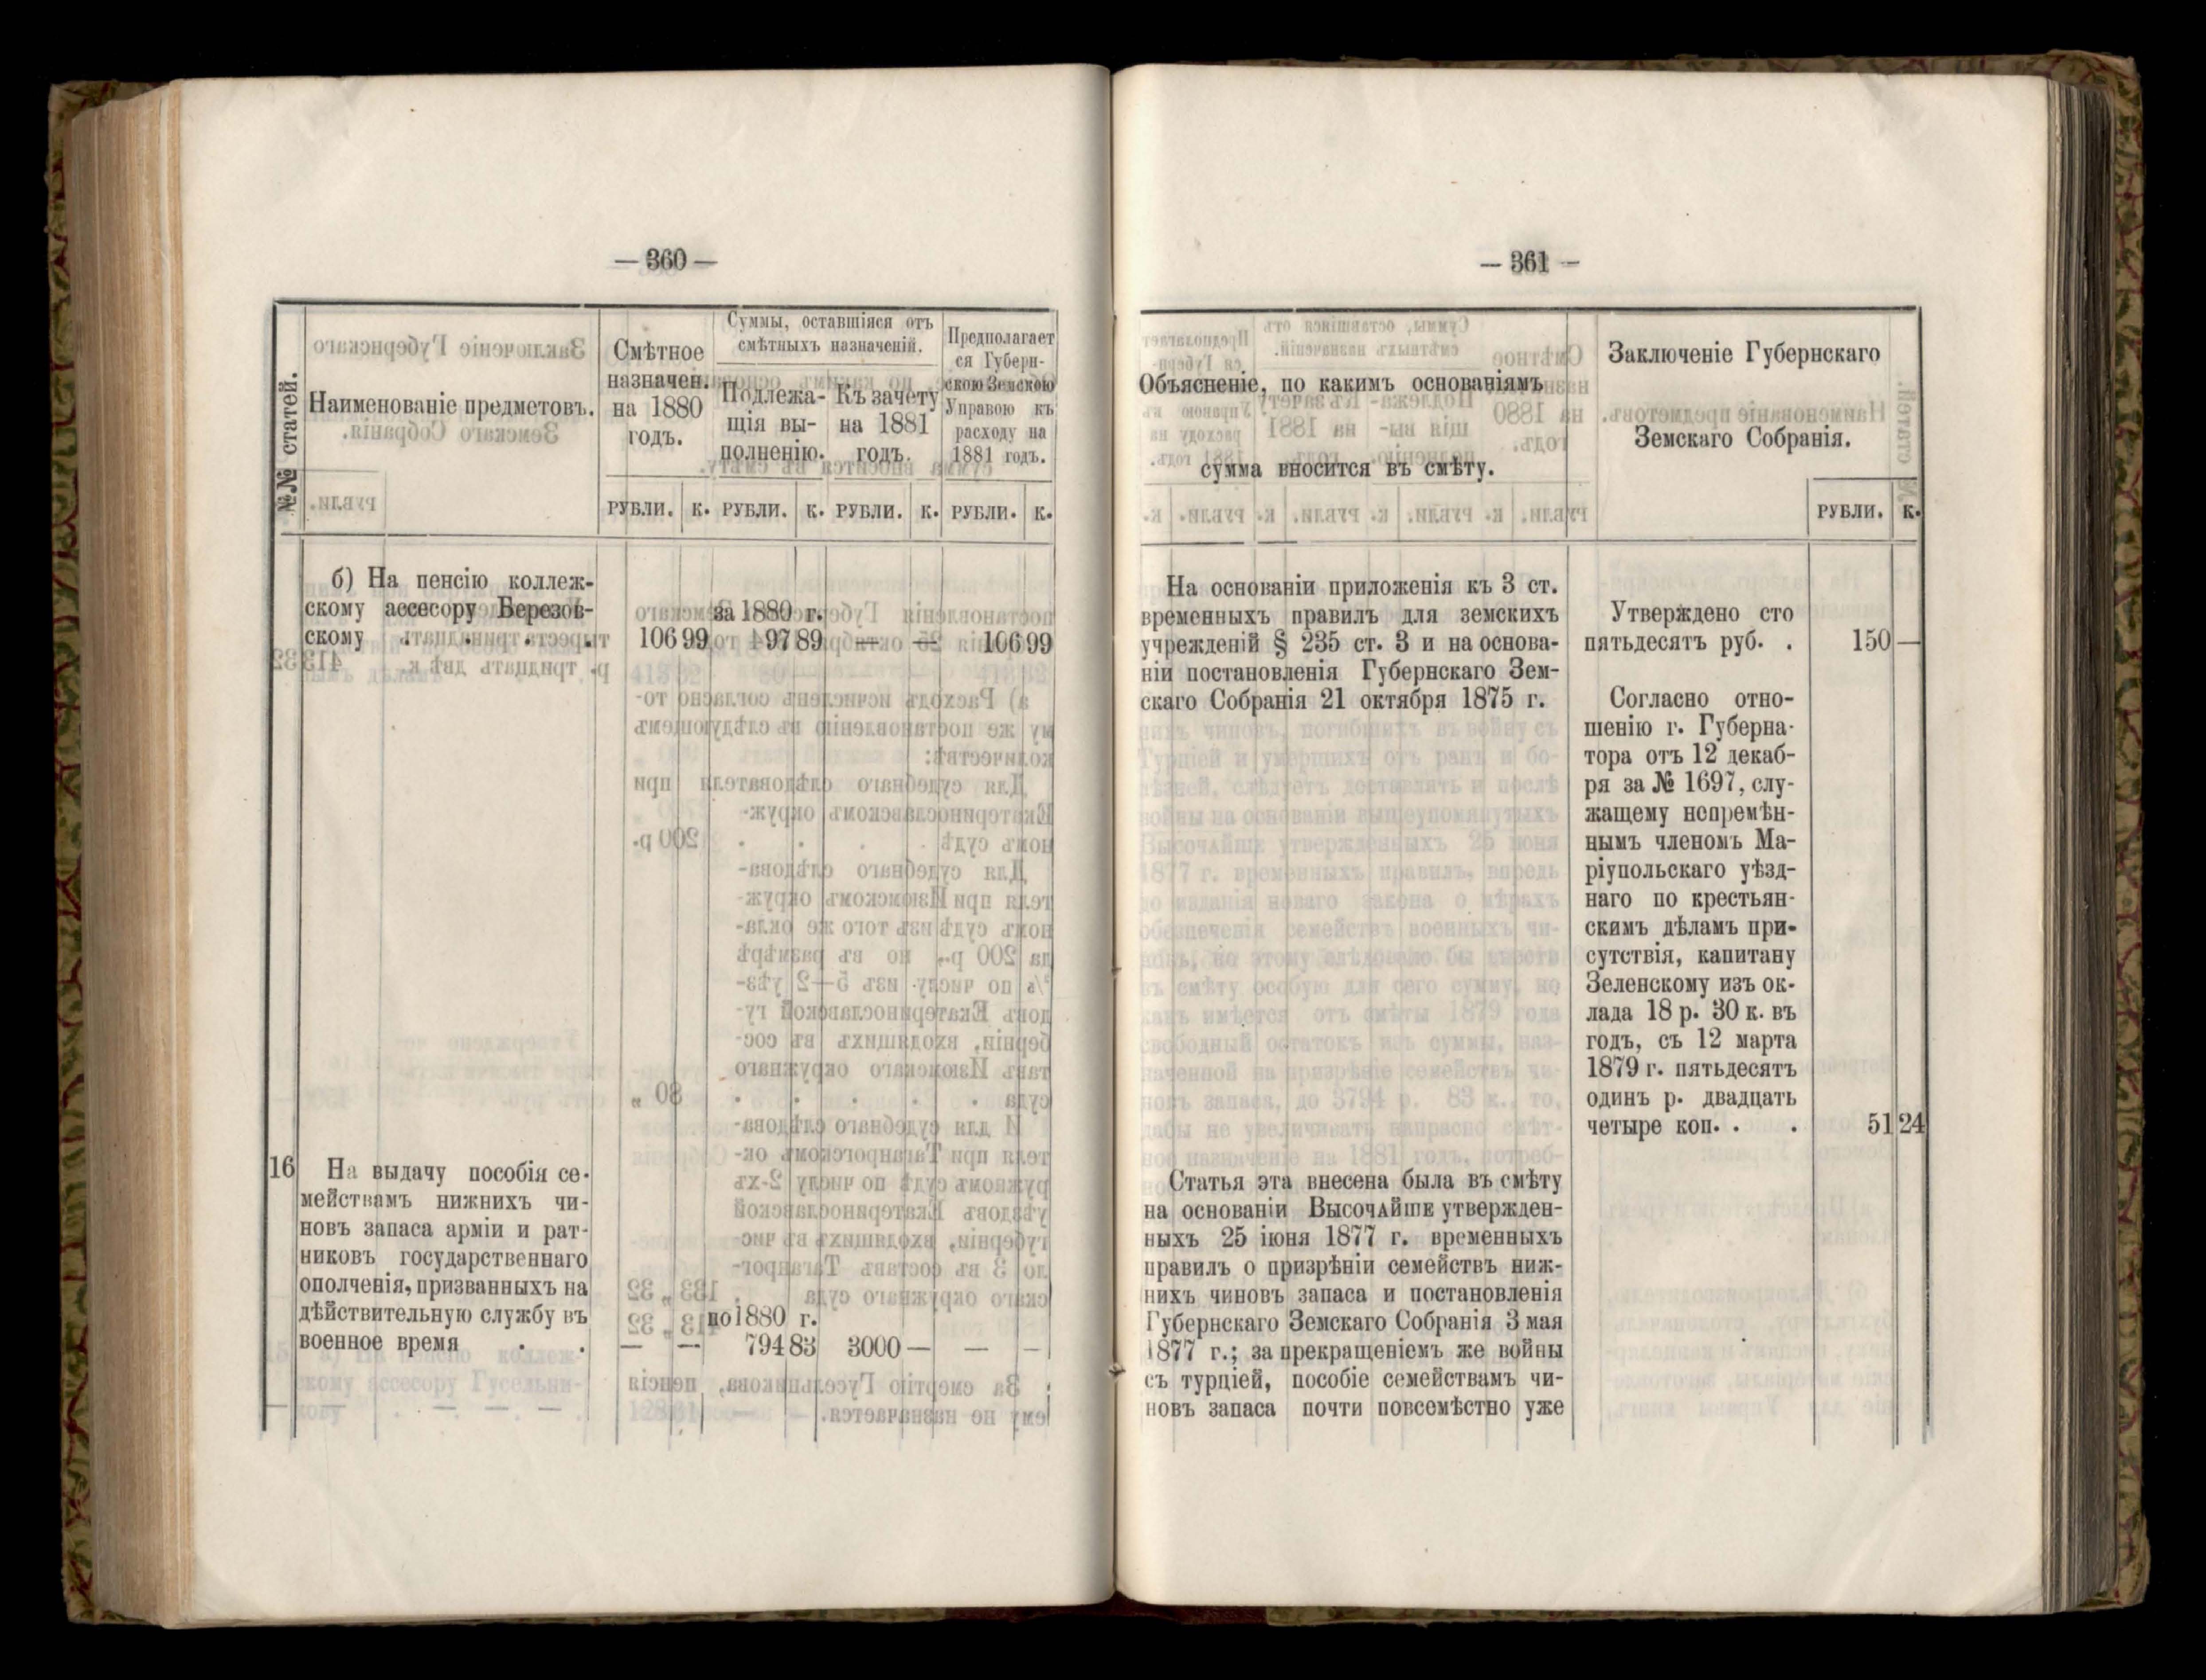 — 360 —
№№ статей.
Наименованіе предметовъ.
Смѣтное
назначен.
на 1880
годъ.
Суммы, оставшіяся отъ
смѣтныхъ назначеній.
Подлежа-
щія вы-
полненію.
Къ зачету
на 1881
годъ.
Предполагает
ся Губерн-
скою Земскою
Управою къ
расходу на
1881 годъ.
РУБЛИ. К. РУБЛИ. К. РУБЛИ. К. РУБЛИ. К.
б) На пенсію коллеж-
скому ассесору Березов- за 1880 г.
скому . . . 106 99 97 89 — — 106 99
16 На выдачу пособія се-
мействамъ нижнихъ чи-
новъ запаса арміи и рат-
никовъ государственнаго
ополченія, призванныхъ на
дѣйствительную службу въ по 1880 г.
военное время . . — — 794 83 3000 — — —
— 361 —
Объясненіе, по какимъ основаніямъ
сумма вносится въ смѣту.
Заключеніе Губернскаго
Земскаго Собранія.
РУБЛИ. К.
На основаніи приложенія къ 3 ст.
временныхъ правилъ для земскихъ
учрежденій § 235 ст. 3 и на основа-
ніи постановленія Губернскаго Зем-
скаго Собранія 21 октября 1875 г.
Утверждено сто
пятьдесятъ руб. . 150 —
Согласно отно-
шенію г. Губерна-
тора отъ 12 декаб-
ря за № 1697, слу-
жащему непремѣн-
нымъ членомъ Ма-
ріупольскаго уѣзд-
наго по крестьян-
скимъ дѣламъ при-
сутствія, капитану
Зеленскому изъ ок-
лада 18 р. 30 к. въ
годъ, съ 12 марта
1879 г. пятьдесятъ
одинъ р. двадцать
четыре коп. . . 51 24
Статья эта внесена была въ смѣту
на основаніи ВЫСОЧАЙШЕ утвержден-
ныхъ 25 іюня 1877 г. временныхъ
правилъ о призрѣніи семействъ ниж-
нихъ чиновъ запаса и постановленія
Губернскаго Земскаго Собранія 3 мая
1877 г.; за прекращеніемъ же войны
съ турціей, пособіе семействамъ чи-
новъ запаса почти повсемѣстно уже